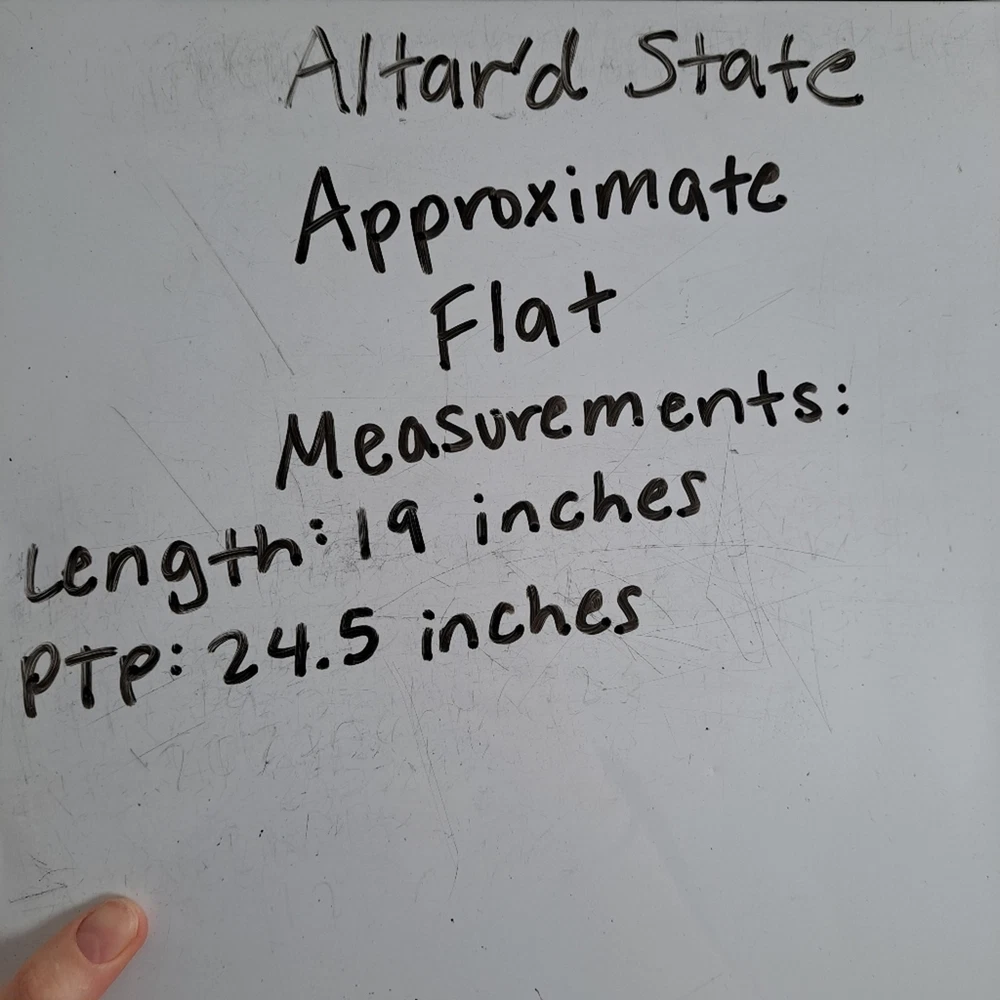 Altar'd State
Approximate
Flat
Measurements:
Length: 19 inches
PTP: 24.5 inches